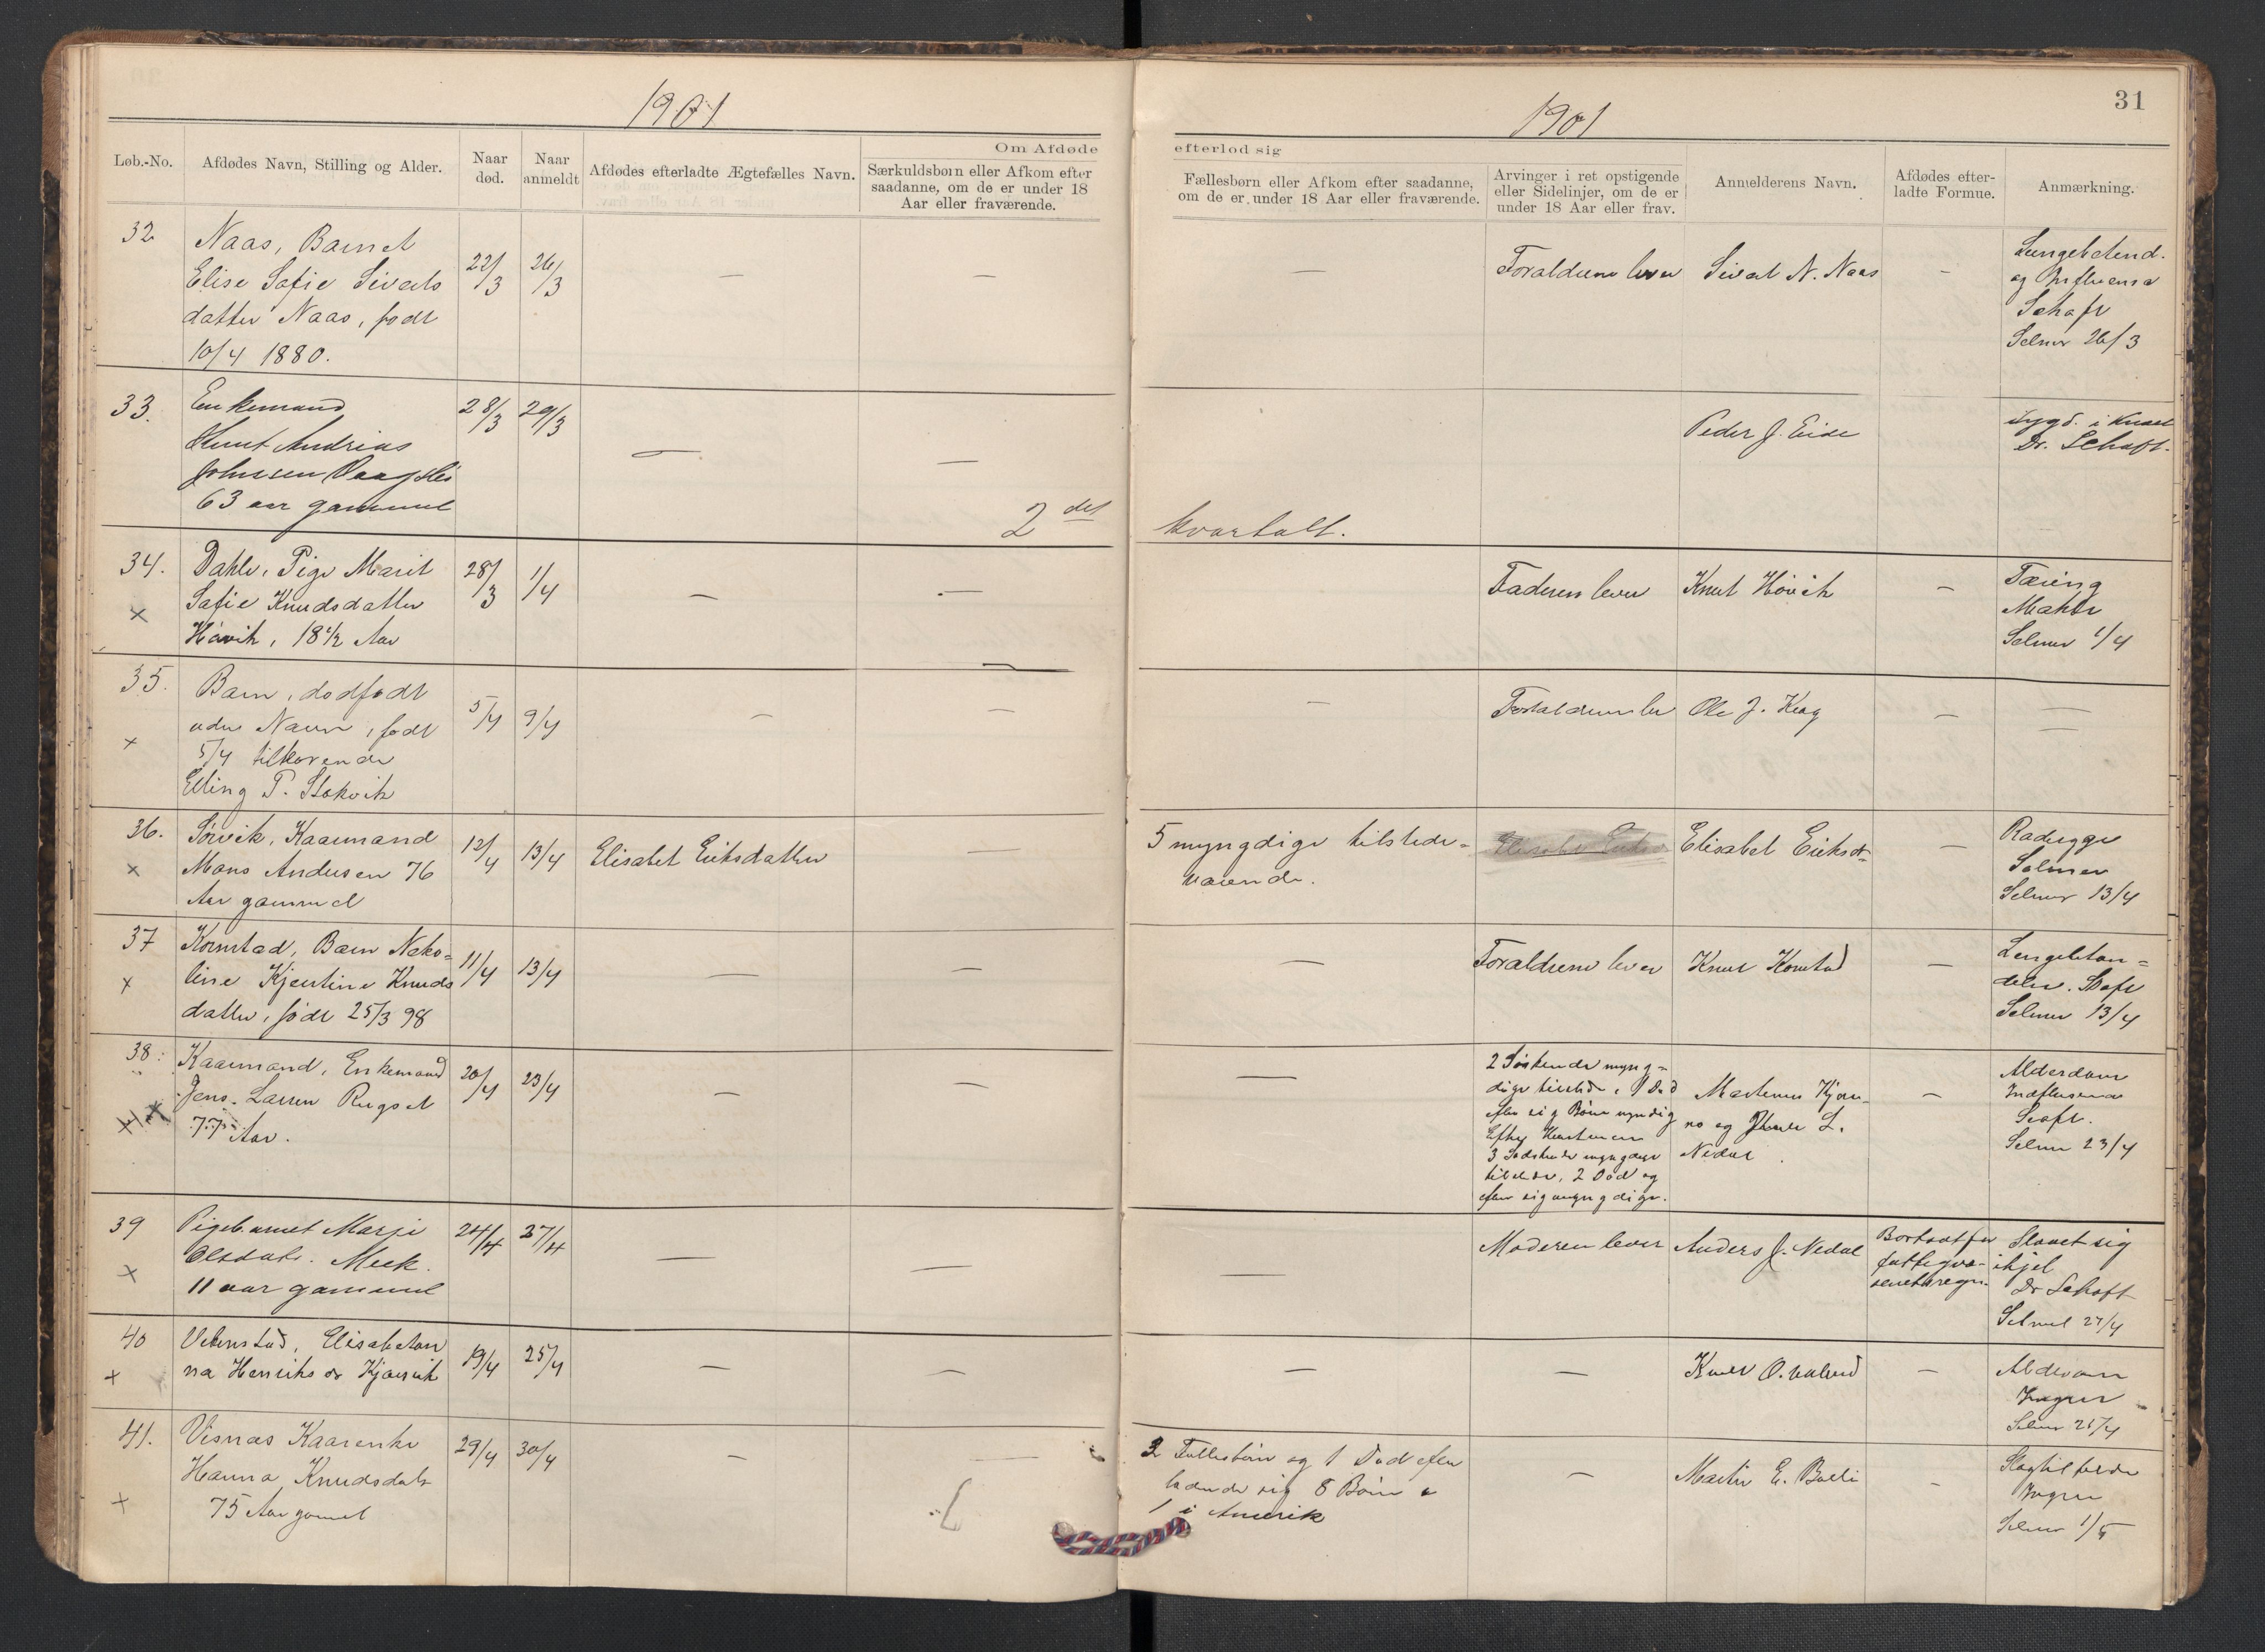 1901
Løb.-No.
Afdødes Navn, Stilling og Alder.
Naar
død.
Naar
anmeldt
Afdødes efterladte Ægtefælles Navn.
Om Afdøde
Særkuldsbørn eller Afkom efter
saadanne, om de er under 18
Aar eller fraværende.
32
Naas, Barnet
Elise Sofie Siverts
datter Naas, født
10/4 1880.
22/3
26/3
—
—
33.
Enkemand
Knut Andrias
Johnsen
63 aar gammel
28/3
29/3
—
—
2 det
34.
×
Dahle, Pige Marit
Sofie Knudsdatter
Høvik, 18 1/2 Aar
28/3
1/4
—
—
35.
×
Barn, dødfødt
uden Navn, født
5/4 tilhørende
Elling P. Stokvik
5/4
9/4
—
—
36.
×
Sørvik, Kaarmand
Mons Andersen 76
Aar gammel
12/4
13/4
Elisabet Eriksdatter
—
37
×
Kornstad, Barn Niko=
line Kjerstine Knuds
datter, født 25/3 98
11/4
13/4
—
—
38:
Kaarmand, Enkemand
Jens Larsen Rugset
77 Aar.
20/4
23/4
—
—
39
×
Pigebarnet Marje
Olsdatr. Meek.
11 aar gammel
24/4
27/4
—
—
40
×
Vebenstad, Elisabetan
na Henriks dr Kjørvik
19/4
25/4
—
—
41.
×
Visnæs Kaarenke
Hanna Knudsdatr
75 Aar gamel
29/4
30/4
—
—
1901
31
efterlod sig
Fællesbørn eller Afkom efter saadanne,
om de er under 18 Aar eller fraværende.
Arvinger i ret opstigende
eller Sidelinjer, om de er
under 18 Aar eller frav.
Anmelderens Navn.
Afdødes efter-
ladte Formue.
Anmærkning.
—
Forældrene lever
Sivert N. Naas
—
Lungebetend.
og Influensa
Schaft
Selmer 26/3
Peder J. Eide
Sygd. i Knæet
Dr. Schaft.
kvartalt.
Faderen lever
Knut Høvik
—
Tæring
Mahle
Selmer 1/4
—
Forældrene lev
Ole J. Krag
—
—
—
5 myngdige tilstede=
værende.
Elisabet Eriksdr
—
Selmer 13/4
—
Forældrene lever
Knut Kornstad
—
Lungebetæn=
delse.
Selmer 13/4
—
2 Søskende myng=
dige tilstede, 1 Død
efter sig Børn myndig
3 Sødskende myngdige
tilstede, 2 Død og
efter sig myngdige.
Martinus Kjøn-
nø og L.
Nedal
—
Alderdom
Indfluensa
Scaft.
Selmer 23/4
—
Moderen lever
Anders J. Nedal
Bortsat for
fattigvæ-
senets regn.
Slaaet sig
ihjel
Dr Schaft
Selmer 27/4
—
—
Knut O.
—
Alderdom
Ingen
Selmer 25/4
3 Fællesbørn og 1 Død efter
ladende sig 8 Børn
1 i Amerik
—
Martin E. Bolli
—
Slagtilfælde
Ingen
Selmer 1/5